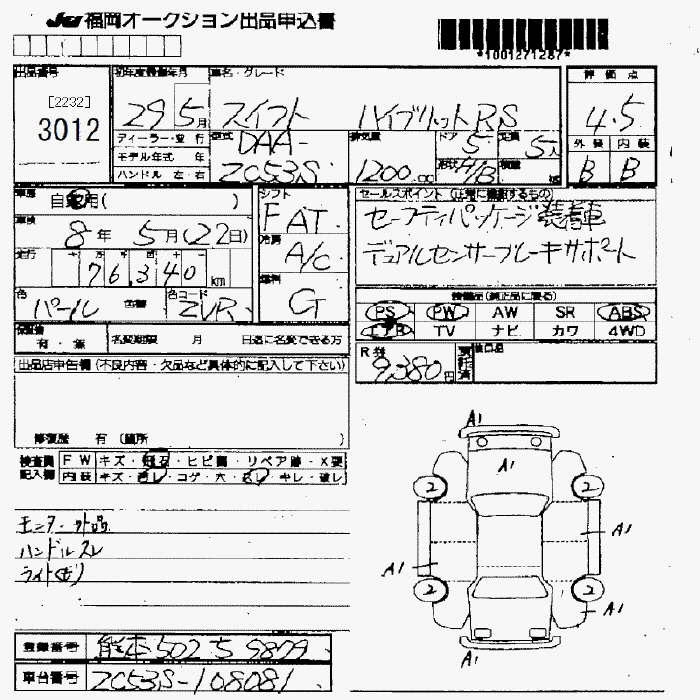 JU福岡オークション出品申込書
*1001271287*
出品番号 [2232] 3012
初年度登録年月 29 5月
車名・グレード スイフト ハイブリットRS
評価点 4.5
外装 内装
B B
ディーラー・並行
モデル年式 年
ハンドル 左・右
型式 DAA-ZC53S
排気量 1200cc
ドア 5
形状 H/B
定員 5人
積量
車歴 自家用( )
車検 8年 5月(22日)
走行 76,340km
色 パール 色替
色コード ZVR
シフト FAT
冷房 A/C
燃料 G
セールスポイント(正常に機能するもの)
セーフティパッケージ装着車
デュアルセンサーブレーキサポート
装備品(純正品に限る)
PS PW AW SR ABS
エアB TV ナビ カワ 4WD
R券 9,380円 預託済
後日品
保証書 有・無
名変期限 月 日迄に名変できる方
出品店申告欄(不良内容・欠品など具体的に記入して下さい)
修復歴 有(箇所 )
検査員 FW キズ・飛石・ヒビ割・リペア跡・X要
記入欄 内装 キズ・ヨゴレ・コゲ・穴・スレ・キレ・破レ
モニター欠品
ハンドルスレ
ライト(キ)
A1
A1
2 2
A1
A1
2 2
A1
A1
登録番号 熊本502 ち 9879
車台番号 ZC53S-108081